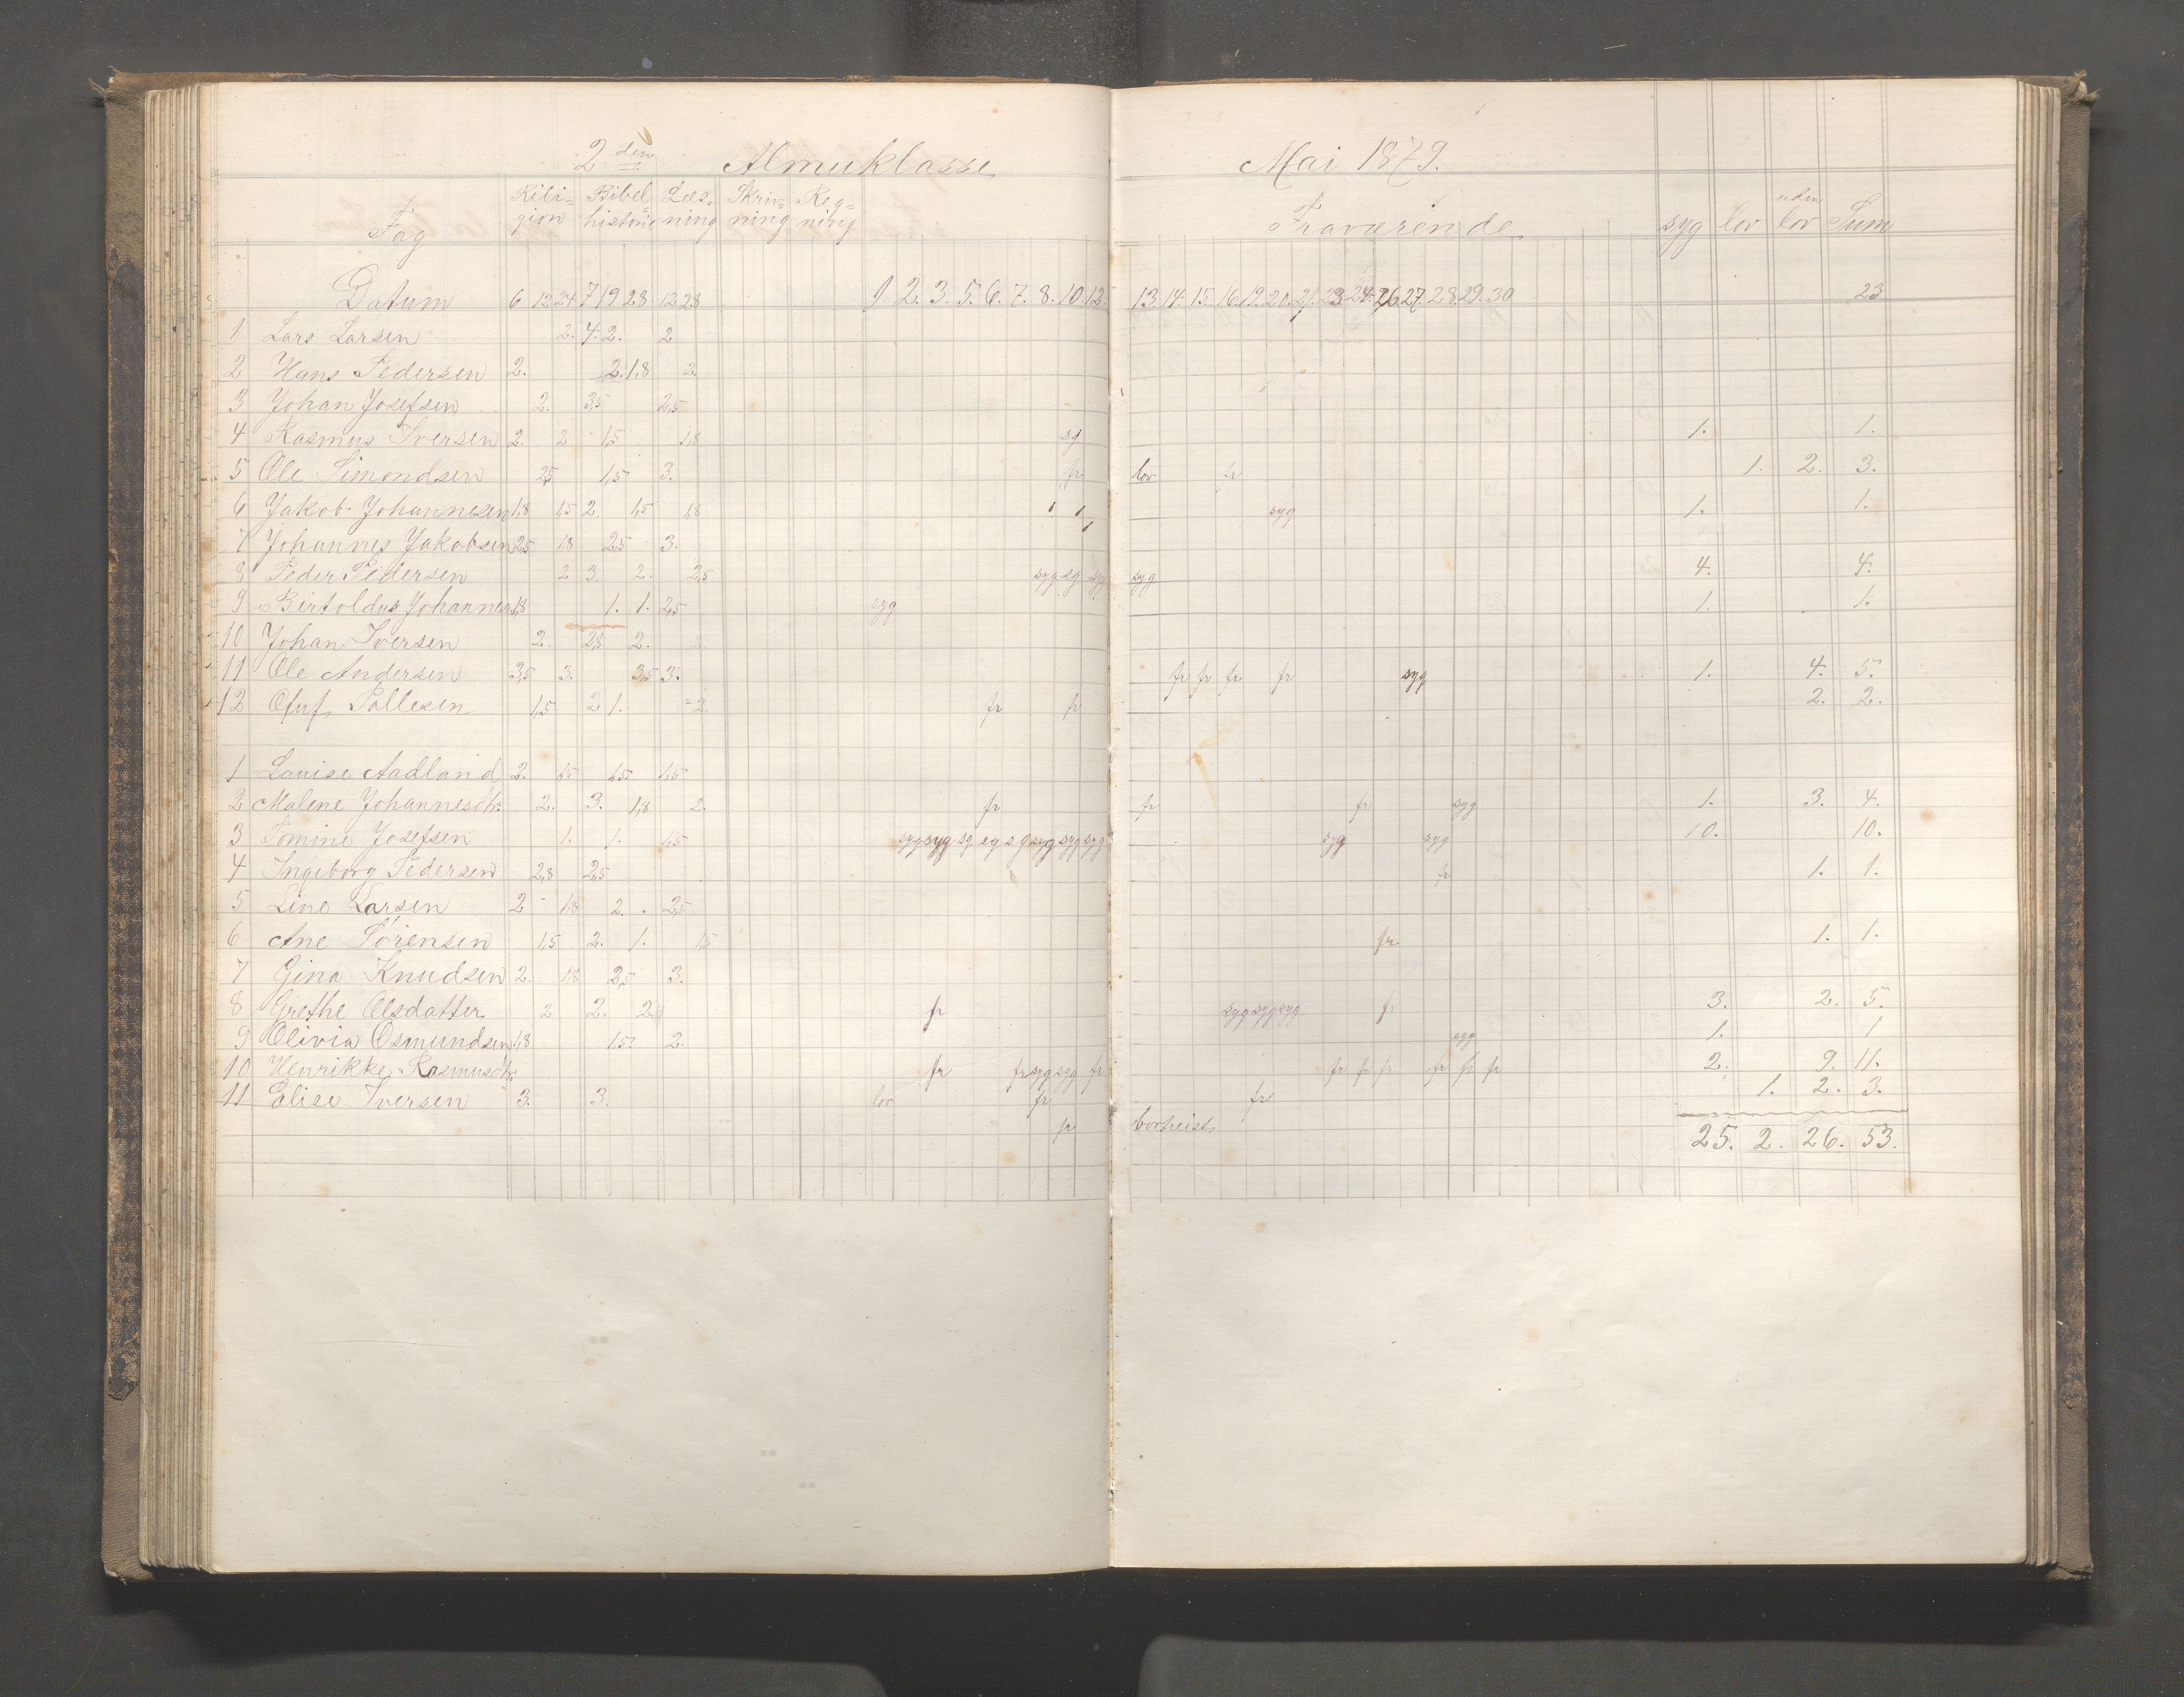 2den Almuklasse Mai 1879.
Fag Religion Bibelhistorie Læsning Skrivning Regning Fraværende syg lov uden lov Sum
Datum 6 12 24 7 19 28 12 28 1. 2. 3. 5. 6. 7. 8. 10. 12. 13. 14. 15. 16. 19. 20. 21. 23. 24. 26. 27. 28. 29. 30 23
1 Lars Larsen 2. 4. 2. 2
2 Hans Pedersen 2. 2. 1,8 2.
3 Johan Josefsen 2. 3,5 2,5
4 Rasmus Iversen 2. 2 1,5 1,8 sg 1. 1.
5 Ole Simondsen 2,5 1,5 3. fr lov fr 1. 2. 3.
6 Jakob Johannesen 1,8 1,5 2. 1,5 1,8 syg 1. 1.
7 Johannes Jakobsen 2,5 1,8 2,5 3.
8 Peder Pedersen 2 3. 2. 2,5 syg sg syg syg 4. 4.
9 Bertoldus Johannesen 1,8 1. 1. 2,5 syg 1. 1.
10 Johan Iversen 2. 2,8 2. 2.
11 Ole Andersen 3,5 3. 3,5 3. fr fr fr fr syg 1. 4. 5.
12 Oluf Pallesen 1,5 2 1. 2. fr fr 2. 2.
1 Lauise Aadland 2. 1,5 1,5 1,5
2 Malene Johannesdtr. 2. 3. 1,8 2. fr fr fr syg 1. 3. 4.
3 Tomine Josefsen 1. 1. 1,5 syg syg sg sg sg syg syg syg syg syg 10. 10.
4 Ingeborg Pedersen 2,8 2,5 fr 1. 1.
5 Line Larsen 2 1,8 2. 2,5
6 Ane Sørensen 1,5 2. 1. 1,5 fr 1. 1.
7 Gina Knudsen 2. 1,8 2,5 3.
8 Grethe Olsdatter 2 2. 2. fr syg syg syg fr 3. 2. 5.
9 Olivia Osmundsen 1,8 1,5 2. syg 1. 1
10 Henrikke Rasmusdtr. fr fr syg syg fr fr fr fr fr fr fr 2. 9. 11.
11 Elise Iversen 3. 3. lov fr fr 1. 2. 3.
fr bortreist 25. 2. 26. 53.